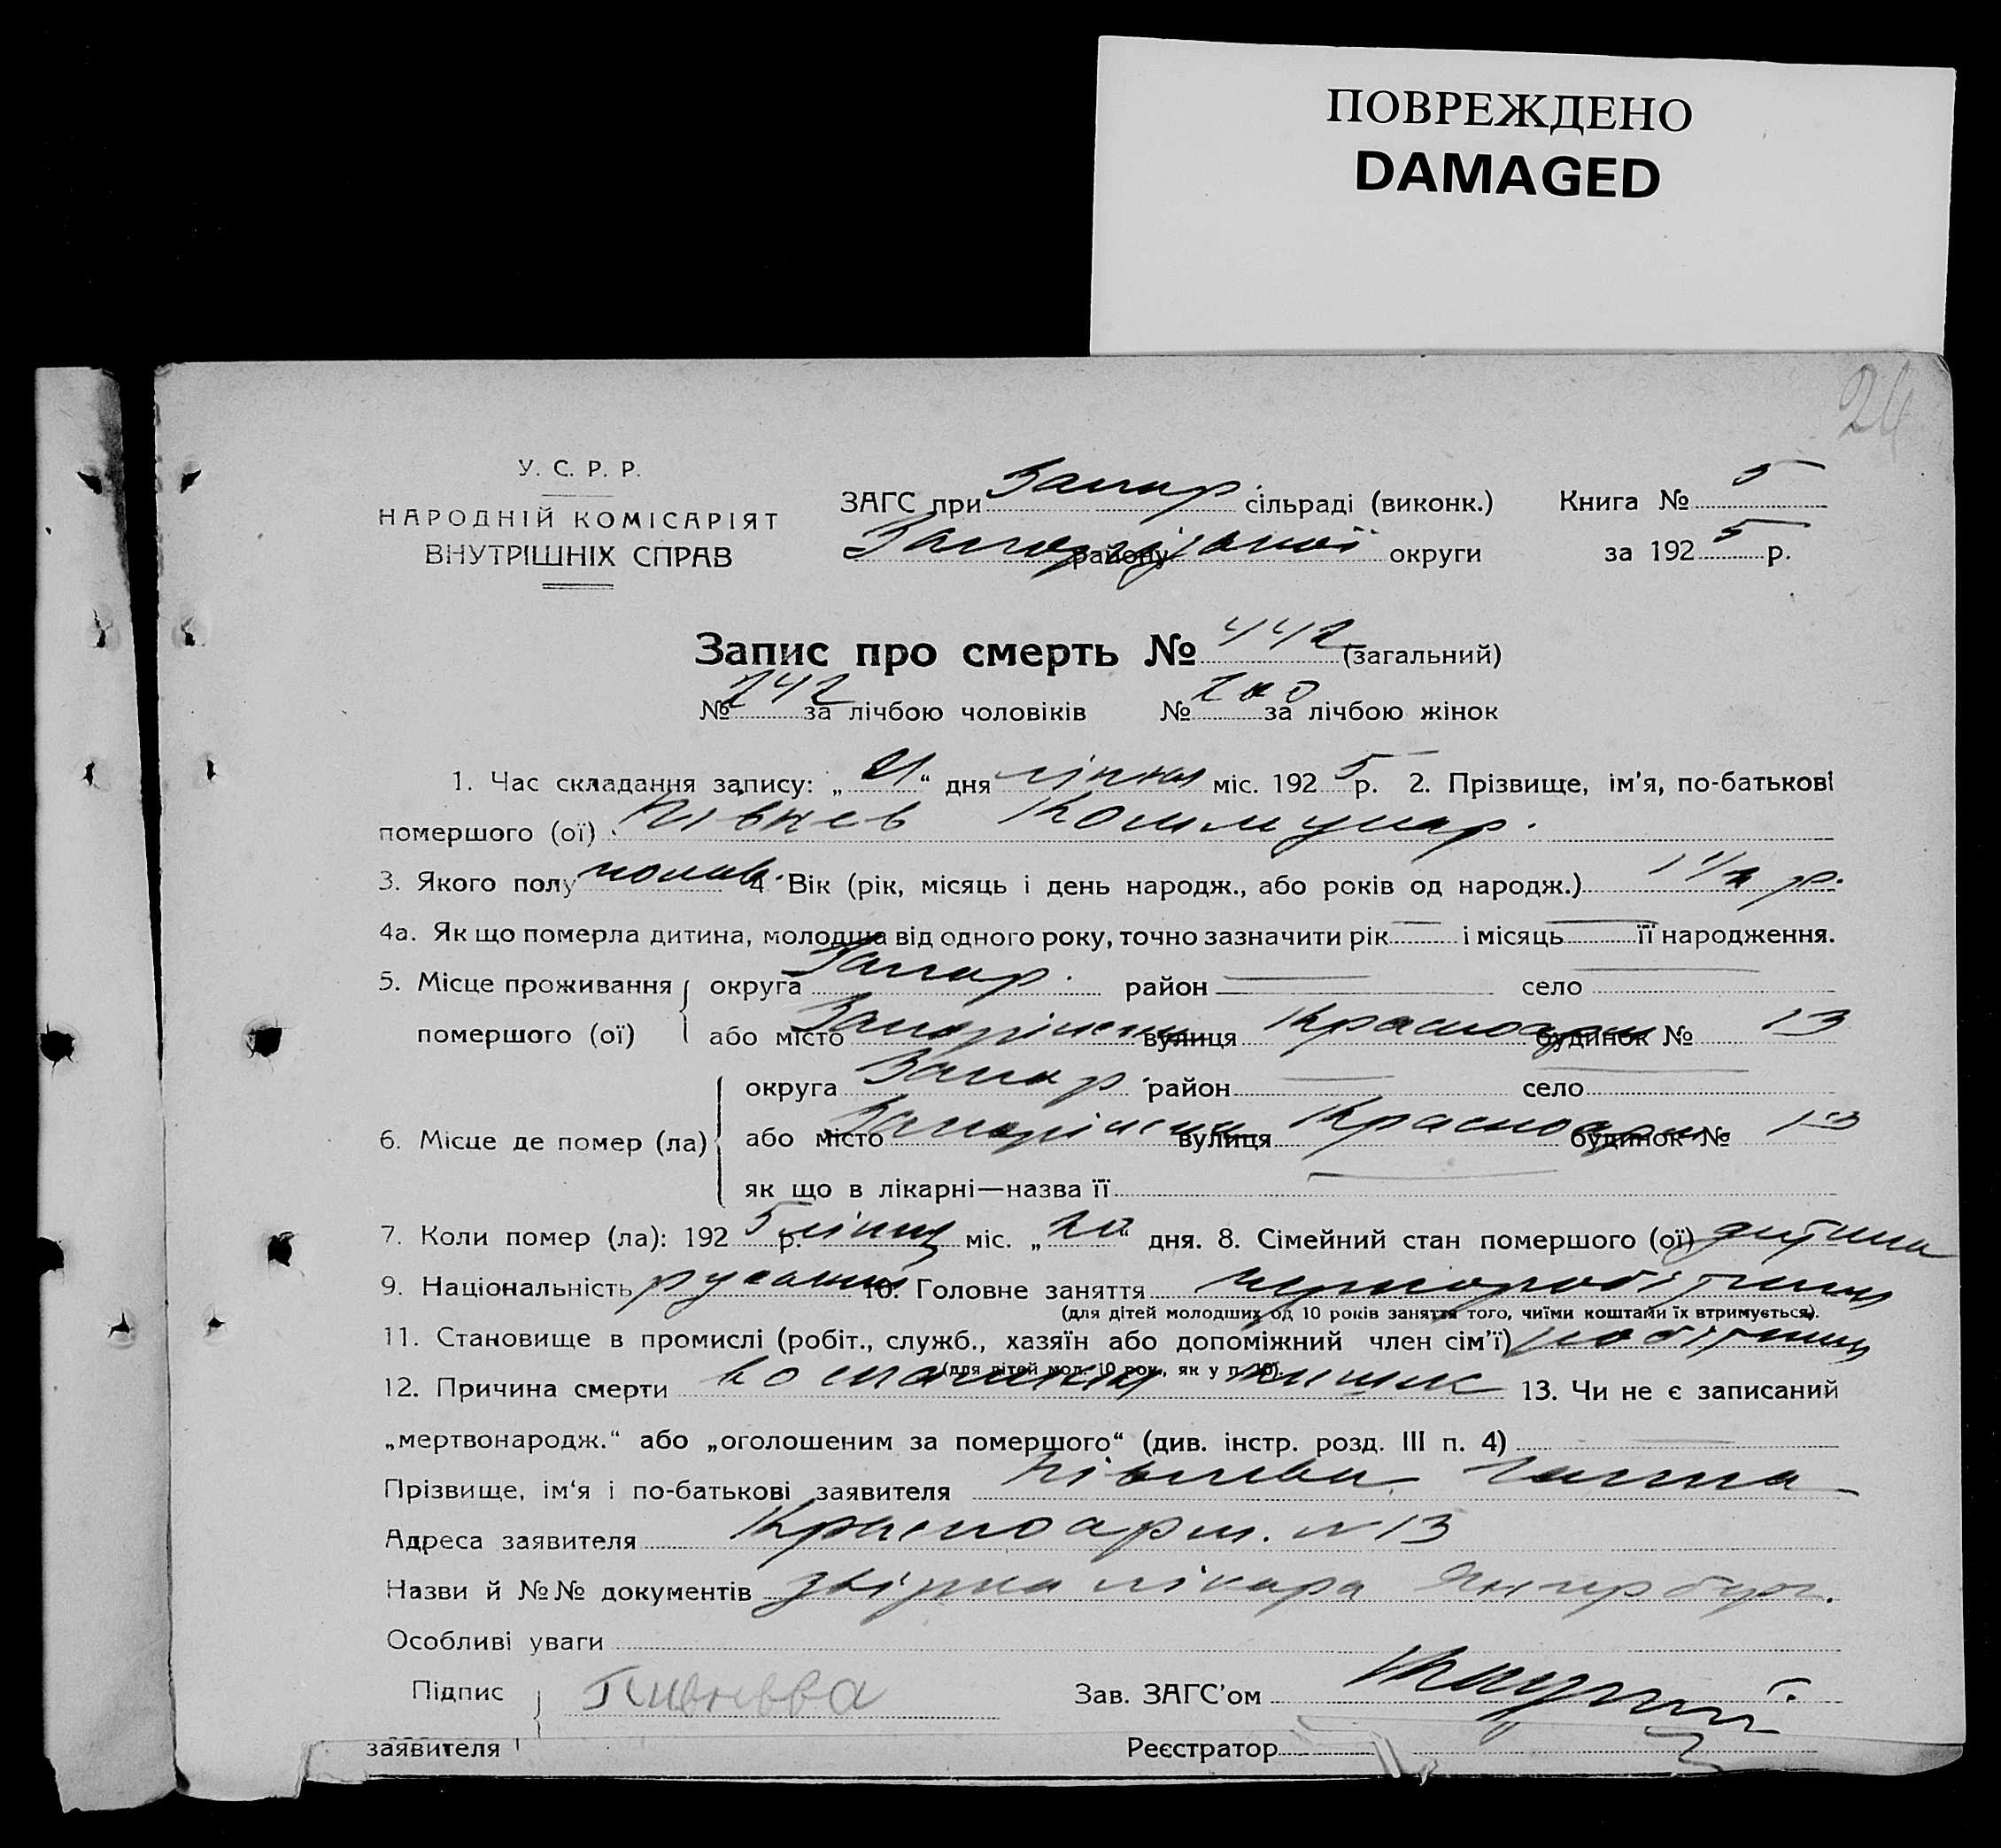 ПОВРЕЖДЕНО
DAMAGED
24
У. С. Р. Р.
НАРОДНІЙ КОМІСАРІЯТ
ВНУТРІШНІХ СПРАВ
ЗАГС при Запор. сільраді (виконк.) Книга № 5
Запорізької району округи за 1925 р.
Запис про смерть № 442 (загальний)
№ 242 за лічбою чоловіків № 200 за лічбою жінок
1. Час складання запису: „21“ дня липня міс. 1925 р. 2. Прізвище, ім'я, по-батькові
помершого (ої) Півнев Коммунар.
3. Якого полу чолов. 4. Вік (рік, місяць і день народж., або років од народж.) 1 1/2 р.
4а. Як що померла дитина, молодша від одного року, точно зазначити рік — і місяць — її народження.
5. Місце проживання помершого (ої) { округа Запор. район — село —
або місто Запоріжжя вулиця Красноарм будинок № 13
6. Місце де помер (ла) { округа Запор. район — село —
або місто Запоріжжя вулиця Красноарм будинок № 13
як що в лікарні—назва її —
7. Коли помер (ла): 1925 р. липня міс. „20“ дня. 8. Сімейний стан помершого (ої) дитина
9. Національність 10. Головне заняття чорноробітниця
(для дітей молодших од 10 років заняття того, чиїми коштами їх втримується).
11. Становище в промислі (робіт., служб., хазяїн або допоміжний член сім'ї) робітниця
(для дітей мол. 10 рок., як у п. 10).
12. Причина смерти кишок 13. Чи не є записаний
„мертвонародж.“ або „оголошеним за помершого“ (див. інстр. розд. III п. 4) —
Прізвище, ім'я і по-батькові заявителя Півнева Ганна
Адреса заявителя Красноарм. № 13
Назви й №№ документів лікаря
Особливі уваги
Підпис заявителя } Пивнева Зав. ЗАГС'ом
Реєстратор